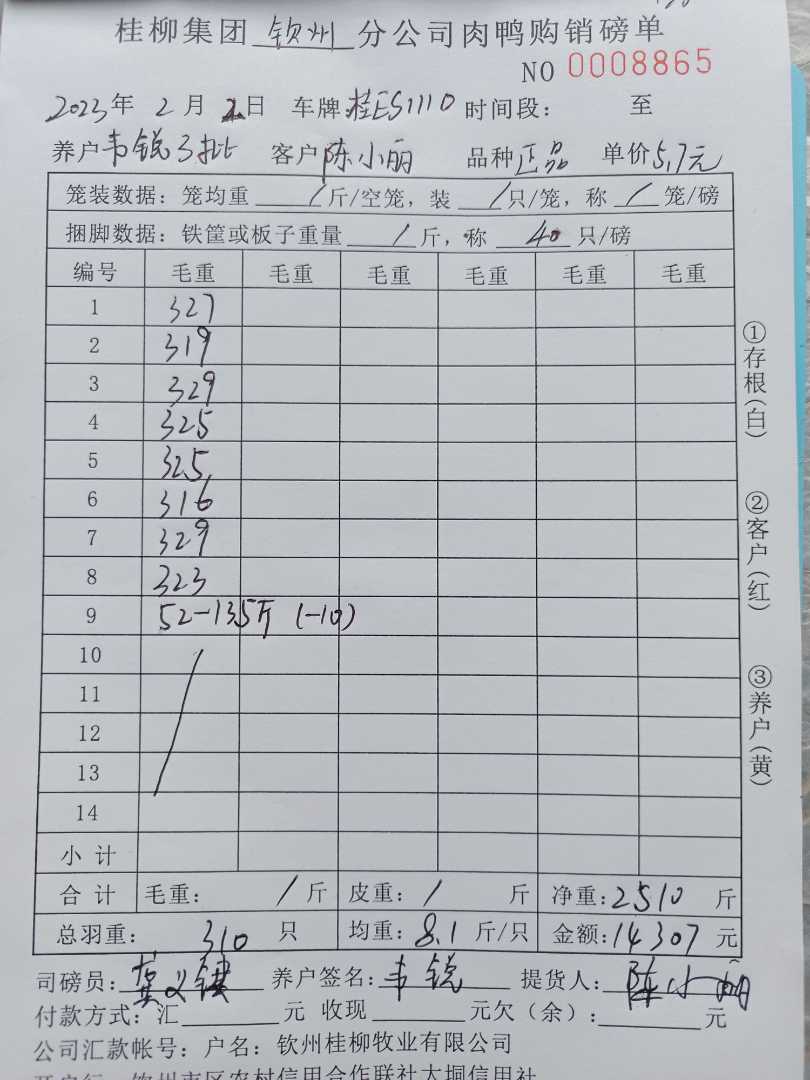 桂柳集团 钦州 分公司肉鸭购销磅单
NO 0008865
2023年 2月 2日 车牌:桂ES1110 时间段: 至
养户 韦锐3批 客户 陈小丽 品种 正品 单价5.7元
笼装数据:笼均重 / 斤/空笼,装 / 只/笼,称 / 笼/磅
捆脚数据:铁筐或板子重量 / 斤,称 40 只/磅
编号 毛重 毛重 毛重 毛重 毛重 毛重
1 327
2 319
3 329
4 325
5 325
6 316
7 329
8 323
9 52-135斤 (-10)
10
11
12
13
14
小计
合计 毛重: / 斤 皮重: / 斤 净重:2510 斤
总羽重: 310 只 均重:8.1 斤/只 金额:14307 元
司磅员: 养户签名:韦锐 提货人:陈小丽
付款方式:汇 元 收现 元欠(余): 元
公司汇款帐号:户名:钦州桂柳牧业有限公司
开户行:钦州市区农村信用合作联社大垌信用社
①存根(白)
②客户(红)
③养户(黄)